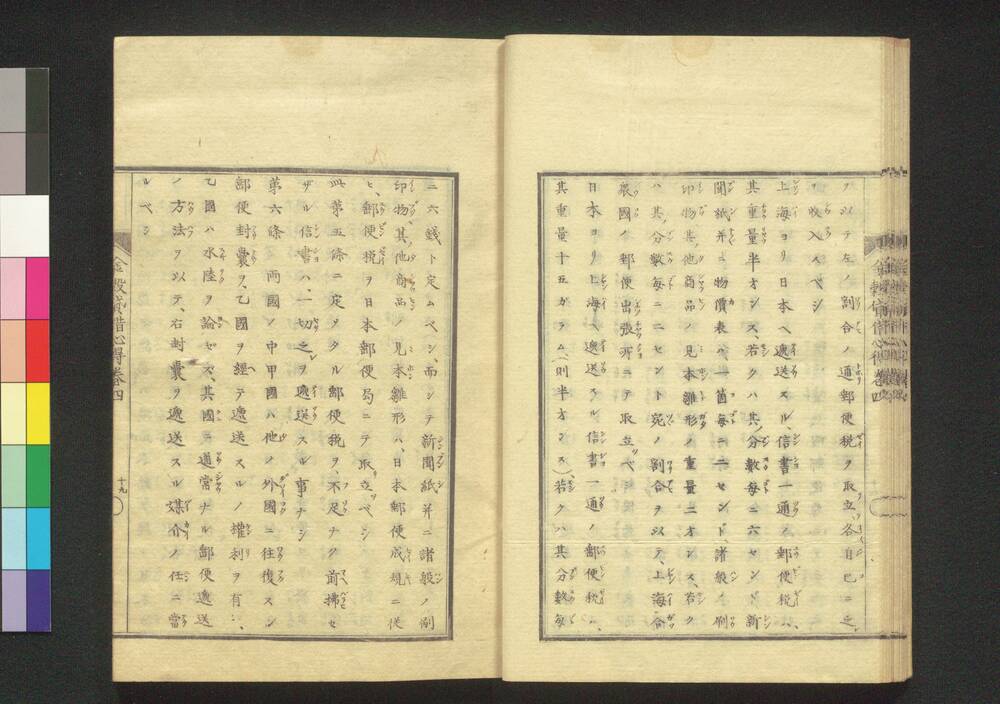 ヲ以テ左ノ割合ノ通郵便税ヲ取立各自己ニ之
ヲ收入スベシ
上海ヨリ日本ヘ遞送スル信書一通ノ郵便税ハ、
其重量半オンス、若クハ其分數毎ニ六セント新
聞紙并ニ物價表ハ一箇毎ニ二セント、諸般ノ刷
印物、其他商品ノ見本雛形ノ重量二オンス、若ク
ハ其分數毎ニ二セント宛ノ割合ヲ以テ、上海合
衆國ノ郵便出張所ニテ取立ベシ
日本ヨリ上海ヘ遞送スル信書一通ノ郵便税ハ、
其重量十五ガラム(則半オンス)若クハ其分數毎
金穀貸借心得卷四
ニ六錢ト定ムベシ、而シテ新聞紙并ニ諸般ノ刷
印物、其他商品ノ見本雛形ハ、日本郵便成規ニ從
ヒ、郵便税ヲ日本郵便局ニテ取立ベシ
此第五條ニ定メタル郵便税ヲ、不足ナク前拂セ
ザル信書ハ、一切之ヲ遞送スル事ナシ
第六條 兩國ノ中甲國ハ他ノ外國ニ往復スル
郵便封囊ヲ、乙國ヲ經テ遞送スルノ權利ヲ有ハ、
乙國ハ水陸ヲ論ゼズ、其國ニ通常ナル郵便遞送
ノ方法ヲ以テ、右封囊ヲ遞送スル媒介ノ任ニ當
ルベシ
金穀貸借心得卷四
十九